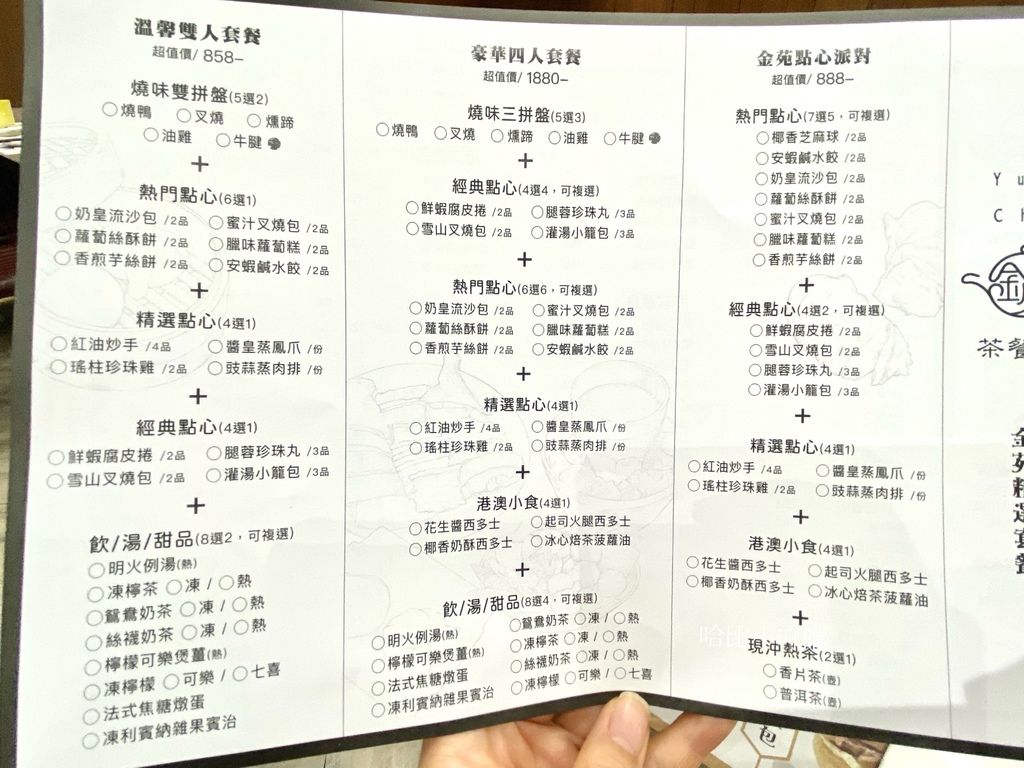 溫馨雙人套餐
超值價/ 858–
燒味雙拼盤(5選2)
○燒鴨 ○叉燒 ○燻蹄
○油雞 ○牛腱
+
熱門點心(6選1)
○奶皇流沙包 /2品 ○蜜汁叉燒包 /2品
○蘿蔔絲酥餅 /2品 ○臘味蘿蔔糕 /2品
○香煎芋絲餅 /2品 ○安蝦鹹水餃 /2品
+
精選點心(4選1)
○紅油炒手 /4品 ○醬皇蒸鳳爪 /份
○瑤柱珍珠雞 /2品 ○豉蒜蒸肉排 /份
+
經典點心(4選1)
○鮮蝦腐皮捲 /2品 ○腿蓉珍珠丸 /3品
○雪山叉燒包 /2品 ○灌湯小籠包 /3品
+
飲/湯/甜品(8選2，可複選)
○明火例湯(熱)
○凍檸茶 ○凍 / ○熱
○鴛鴦奶茶 ○凍 / ○熱
○絲襪奶茶 ○凍 / ○熱
○檸檬可樂煲薑(熱)
○凍檸檬 ○可樂 / ○七喜
○法式焦糖燉蛋
○凍利賓納雜果賓治
豪華四人套餐
超值價/ 1880–
燒味三拼盤(5選3)
○燒鴨 ○叉燒 ○燻蹄 ○油雞 ○牛腱
+
經典點心(4選4，可複選)
○鮮蝦腐皮捲 /2品 ○腿蓉珍珠丸 /3品
○雪山叉燒包 /2品 ○灌湯小籠包 /3品
+
熱門點心(6選6，可複選)
○奶皇流沙包 /2品 ○蜜汁叉燒包 /2品
○蘿蔔絲酥餅 /2品 ○臘味蘿蔔糕 /2品
○香煎芋絲餅 /2品 ○安蝦鹹水餃 /2品
+
精選點心(4選1)
○紅油炒手 /4品 ○醬皇蒸鳳爪 /份
○瑤柱珍珠雞 /2品 ○豉蒜蒸肉排 /份
+
港澳小食(4選1)
○花生醬西多士 ○起司火腿西多士
○椰香奶酥西多士 ○冰心焙茶菠蘿油
+
飲/湯/甜品(8選4，可複選)
○明火例湯(熱) ○鴛鴦奶茶 ○凍 / ○熱
○檸檬可樂煲薑(熱) ○凍檸茶 ○凍 / ○熱
○法式焦糖燉蛋 ○絲襪奶茶 ○凍 / ○熱
○凍利賓納雜果賓治 ○凍檸檬 ○可樂 / ○七喜
金苑點心派對
超值價/ 888–
熱門點心(7選5，可複選)
○椰香芝麻球 /2品
○安蝦鹹水餃 /2品
○奶皇流沙包 /2品
○蘿蔔絲酥餅 /2品
○蜜汁叉燒包 /2品
○臘味蘿蔔糕 /2品
○香煎芋絲餅 /2品
+
經典點心(4選2，可複選)
○鮮蝦腐皮捲 /2品
○雪山叉燒包 /2品
○腿蓉珍珠丸 /3品
○灌湯小籠包 /3品
+
精選點心(4選1)
○紅油炒手 /4品 ○醬皇蒸鳳爪 /份
○瑤柱珍珠雞 /2品 ○豉蒜蒸肉排 /份
+
港澳小食(4選1)
○花生醬西多士 ○起司火腿西多士
○椰香奶酥西多士 ○冰心焙茶菠蘿油
+
現沖熱茶(2選1)
○香片茶(壺)
○普洱茶(壺)
Y u
C h
金
茶餐
金苑精選套餐
包